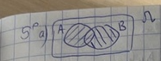 5° a) A B Ω